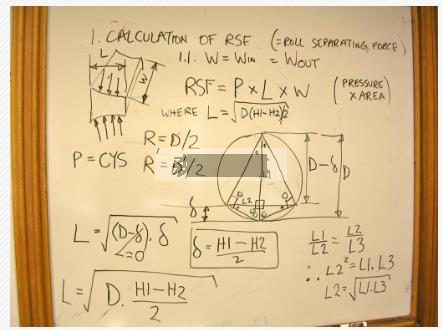 1. CALCULATION OF RSF (=ROLL SEPARATING FORCE)
1.1. W = WIN = WOUT
L
W
RSF = P × L × W (PRESSURE × AREA)
WHERE L = √D(H1-H2)/2
R = D/2
P = CYS
R = D/2
D-δ
D
L2
δ
L = √(D-δ).δ
≏0
δ = H1-H2/2
L1/L2 = L2/L3
∴ L2² = L1.L3
L2 = √L1.L3
L = √D. H1-H2/2